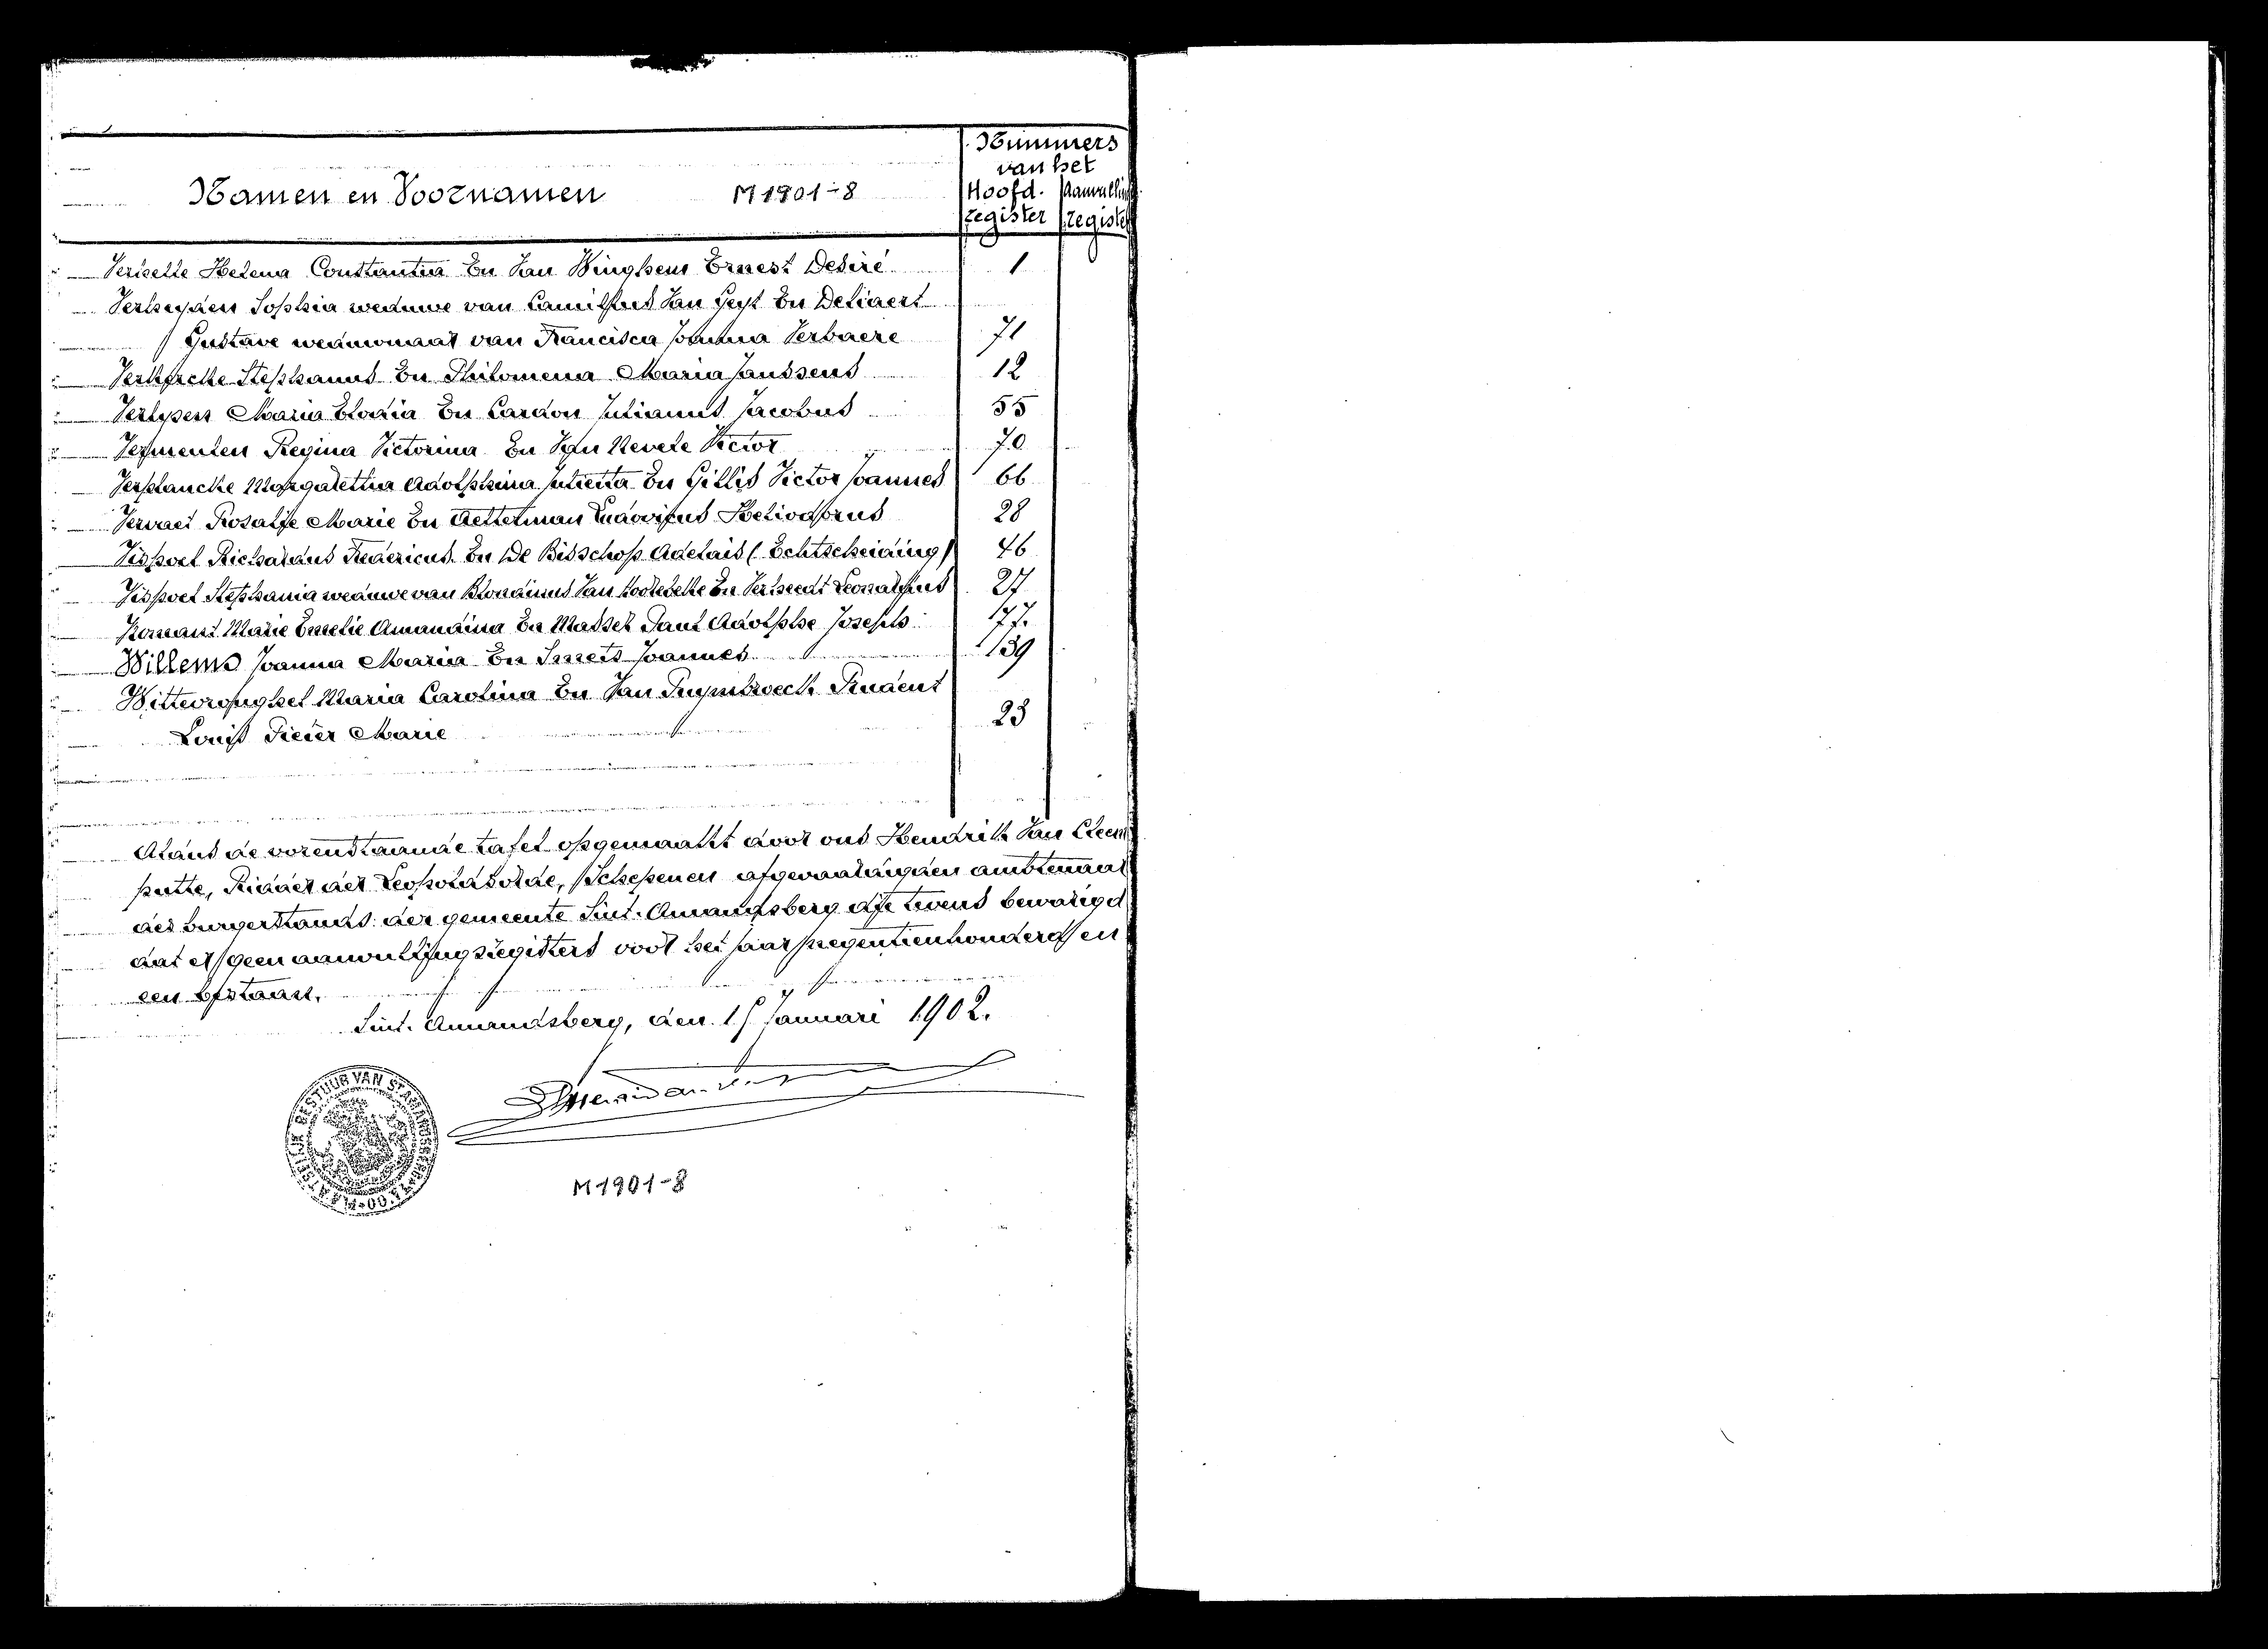 Nummers
van het
Namen en Voornamen M1901-8 Hoofd. Aanvulling
register register
Helena Constantia En Van Winghem Ernest Desiré 1
Verheyden Sophia weduwe van Camillus Van Gest En Deliaert
Gustave weduwnaar van Francisca Joanna Verbaere 71
Stephanus En Philomena Maria Janssens 12
Verlysen Maria Elodia En Cardon Julianus Jacobus 55
Vermeulen Regina Victorina En Van Nevele Victor 70
Verplancke Margaretha Adolphina Julietta En Gillis Victor Joannes 66
Vervaet Rosalie Marie En Aelterman Ludovicus Heliodorus 28
Vispoel Richardus Fredericus En De Bisschop Adelaïs (Echtscheiding) 46
Vispoel Stephania weduwe van Blondinus Van Hoorebeke En Leonardus 27
Marie Emelie Amandina En Masset Paul Adolphe Joseph 77.
Willems Joanna Maria En Smets Joannes 139
Wittevronghel Maria Carolina En Van Puymbroeck Prudent
Louis Pieter Marie 23
Aldus de vorenstaande tafel opgemaakt door ons Hendrik Van Cleem
putte, Ridder der Leopoldsorde, Schepenen afgevaardigden ambtenaar
des burgerstands der gemeente Sint-Amandsberg die tevens bevestigd
dat er geen aanvullingsregisters voor het jaar negentienhonderd en
een bestaan.
Sint-Amandsberg, den 15 Januari 1902.
BESTUUR VAN ST AMANDSBERG
M1901-8